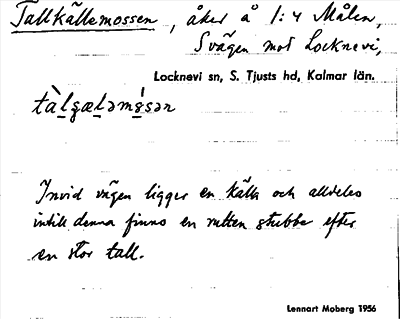 Tallkällemossen, åker å 1:4 Målen,
S vägen mot Locknevi,
Locknevi sn, S. Tjusts hd, Kalmar län.
Invid vägen ligger en källa och alldeles
intill denna finns en rutten stubbe efter
en stor tall.
Lennart Moberg 1956